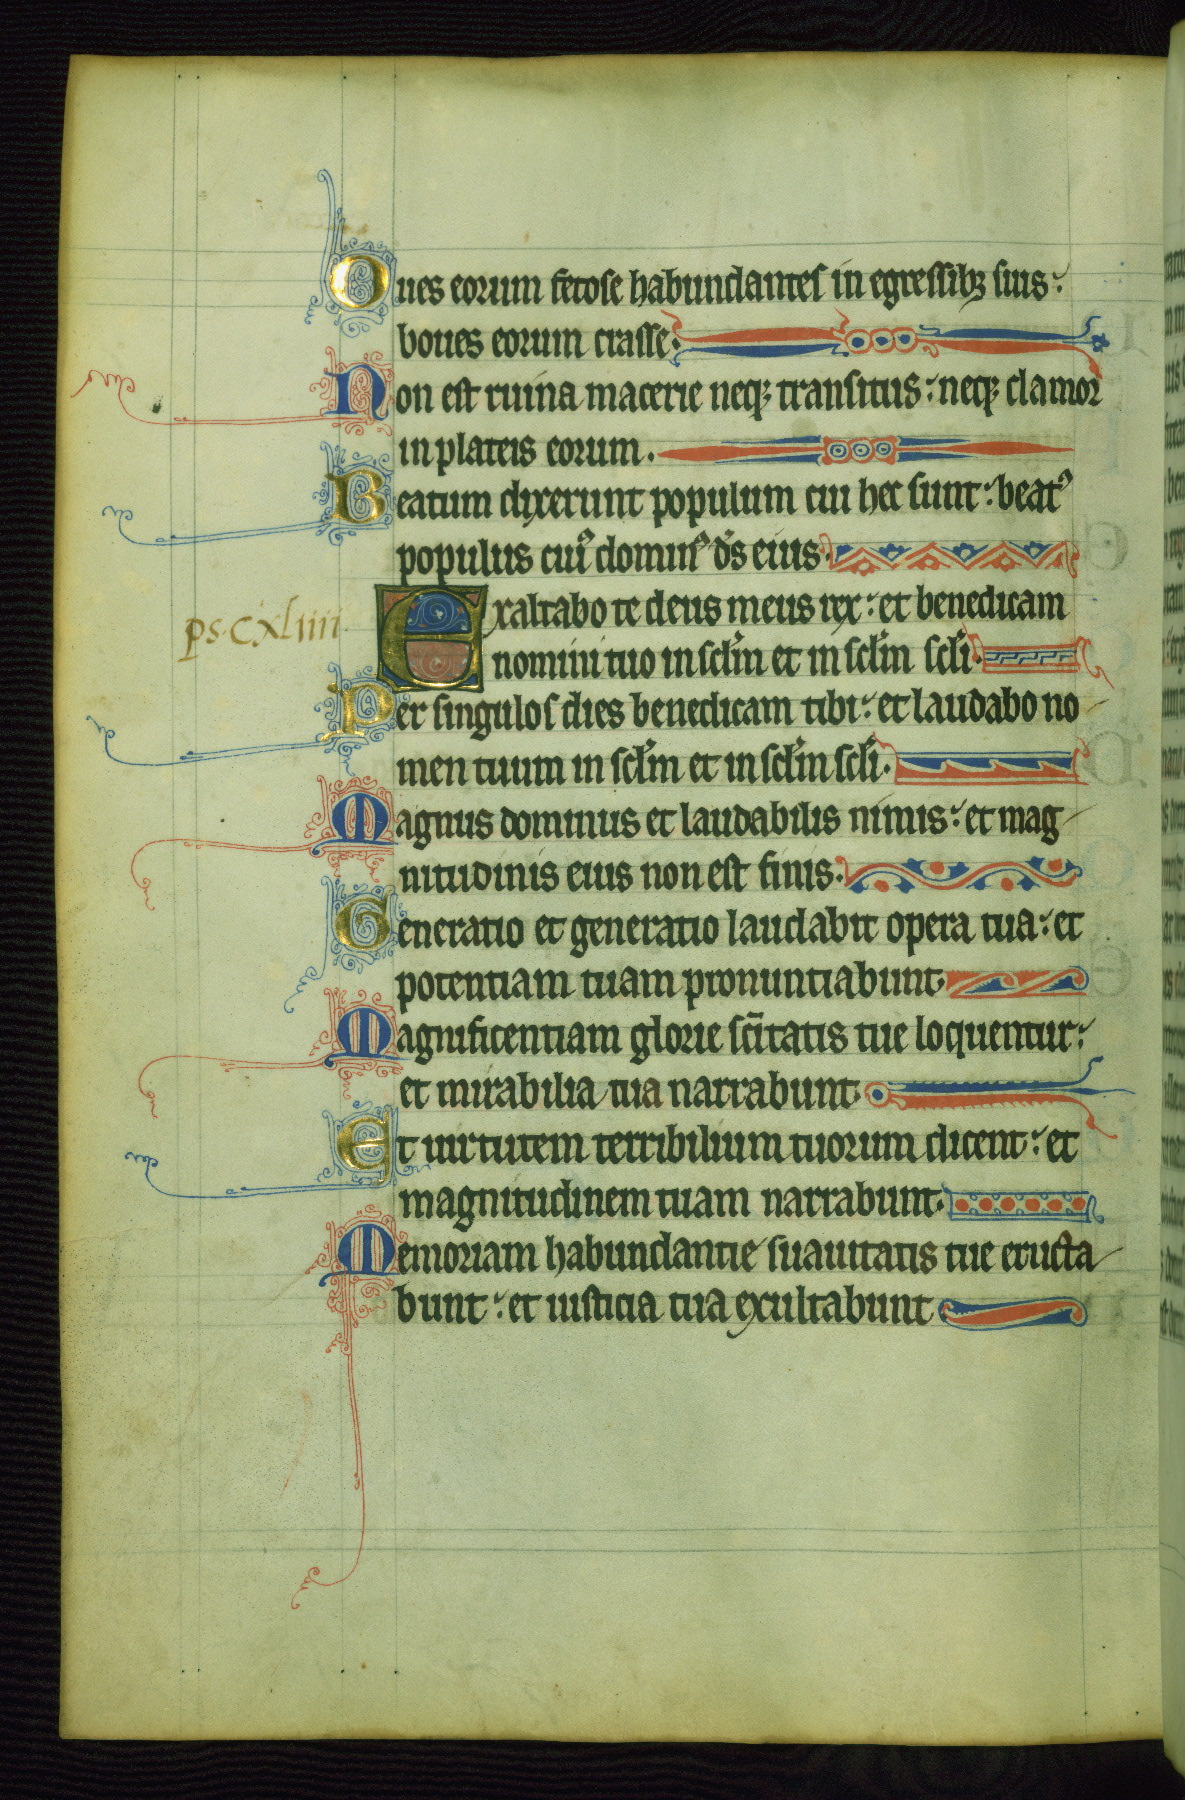 Oues eorum fetose habundantes in egressibꝫ suis:
boues eorum crasse.
Non est ruina macerie neqꝫ transitus: neqꝫ clamor
in plateis eorum.
Beatum dixerunt populum cui hec sunt: beatꝰ
populus cuiꝰ dominꝰ ds̄ eius.
Exaltabo te deus meus rex: et benedicam
ps. CXLiiii.
nomini tuo in sclm̄ et in sclm̄ sclī.
Per singulos dies benedicam tibi: et laudabo no
men tuum in sclm̄ et in sclm̄ sclī.
Magnus dominus et laudabilis nimis: et mag
nitudinis eius non est finis.
Generatio et generatio laudabit opera tua: et
potentiam tuam pronuntiabunt.
Magnificentiam glorie sc̄itatis tue loquentur:
et mirabilia tua narrabunt.
Et uirtutem terribilium tuorum dicent: et
magnitudinem tuam narrabunt.
Memoriam habundantie suauitatis tue eructa
bunt: et iusticia tua exultabunt.